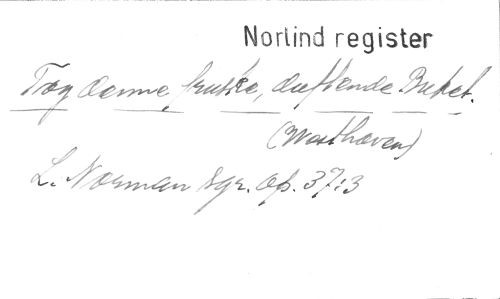 Norlind register
Tag denne friske, duftende Buket.
(Westhoven)
L. Norman sgr. op. 37:3